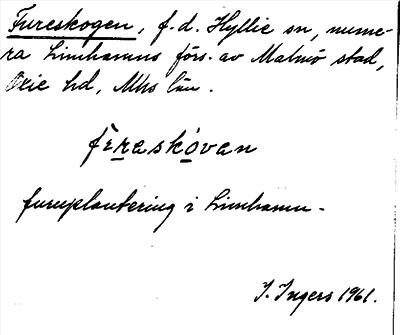 Fureskogen, f. d. Hyllie sn, nume-
ra Limhamns förs. av Malmö stad,
Oxie hd, Mhs län.
fèreskóvan
furuplantering i Limhamn.
I. Ingers 1961.